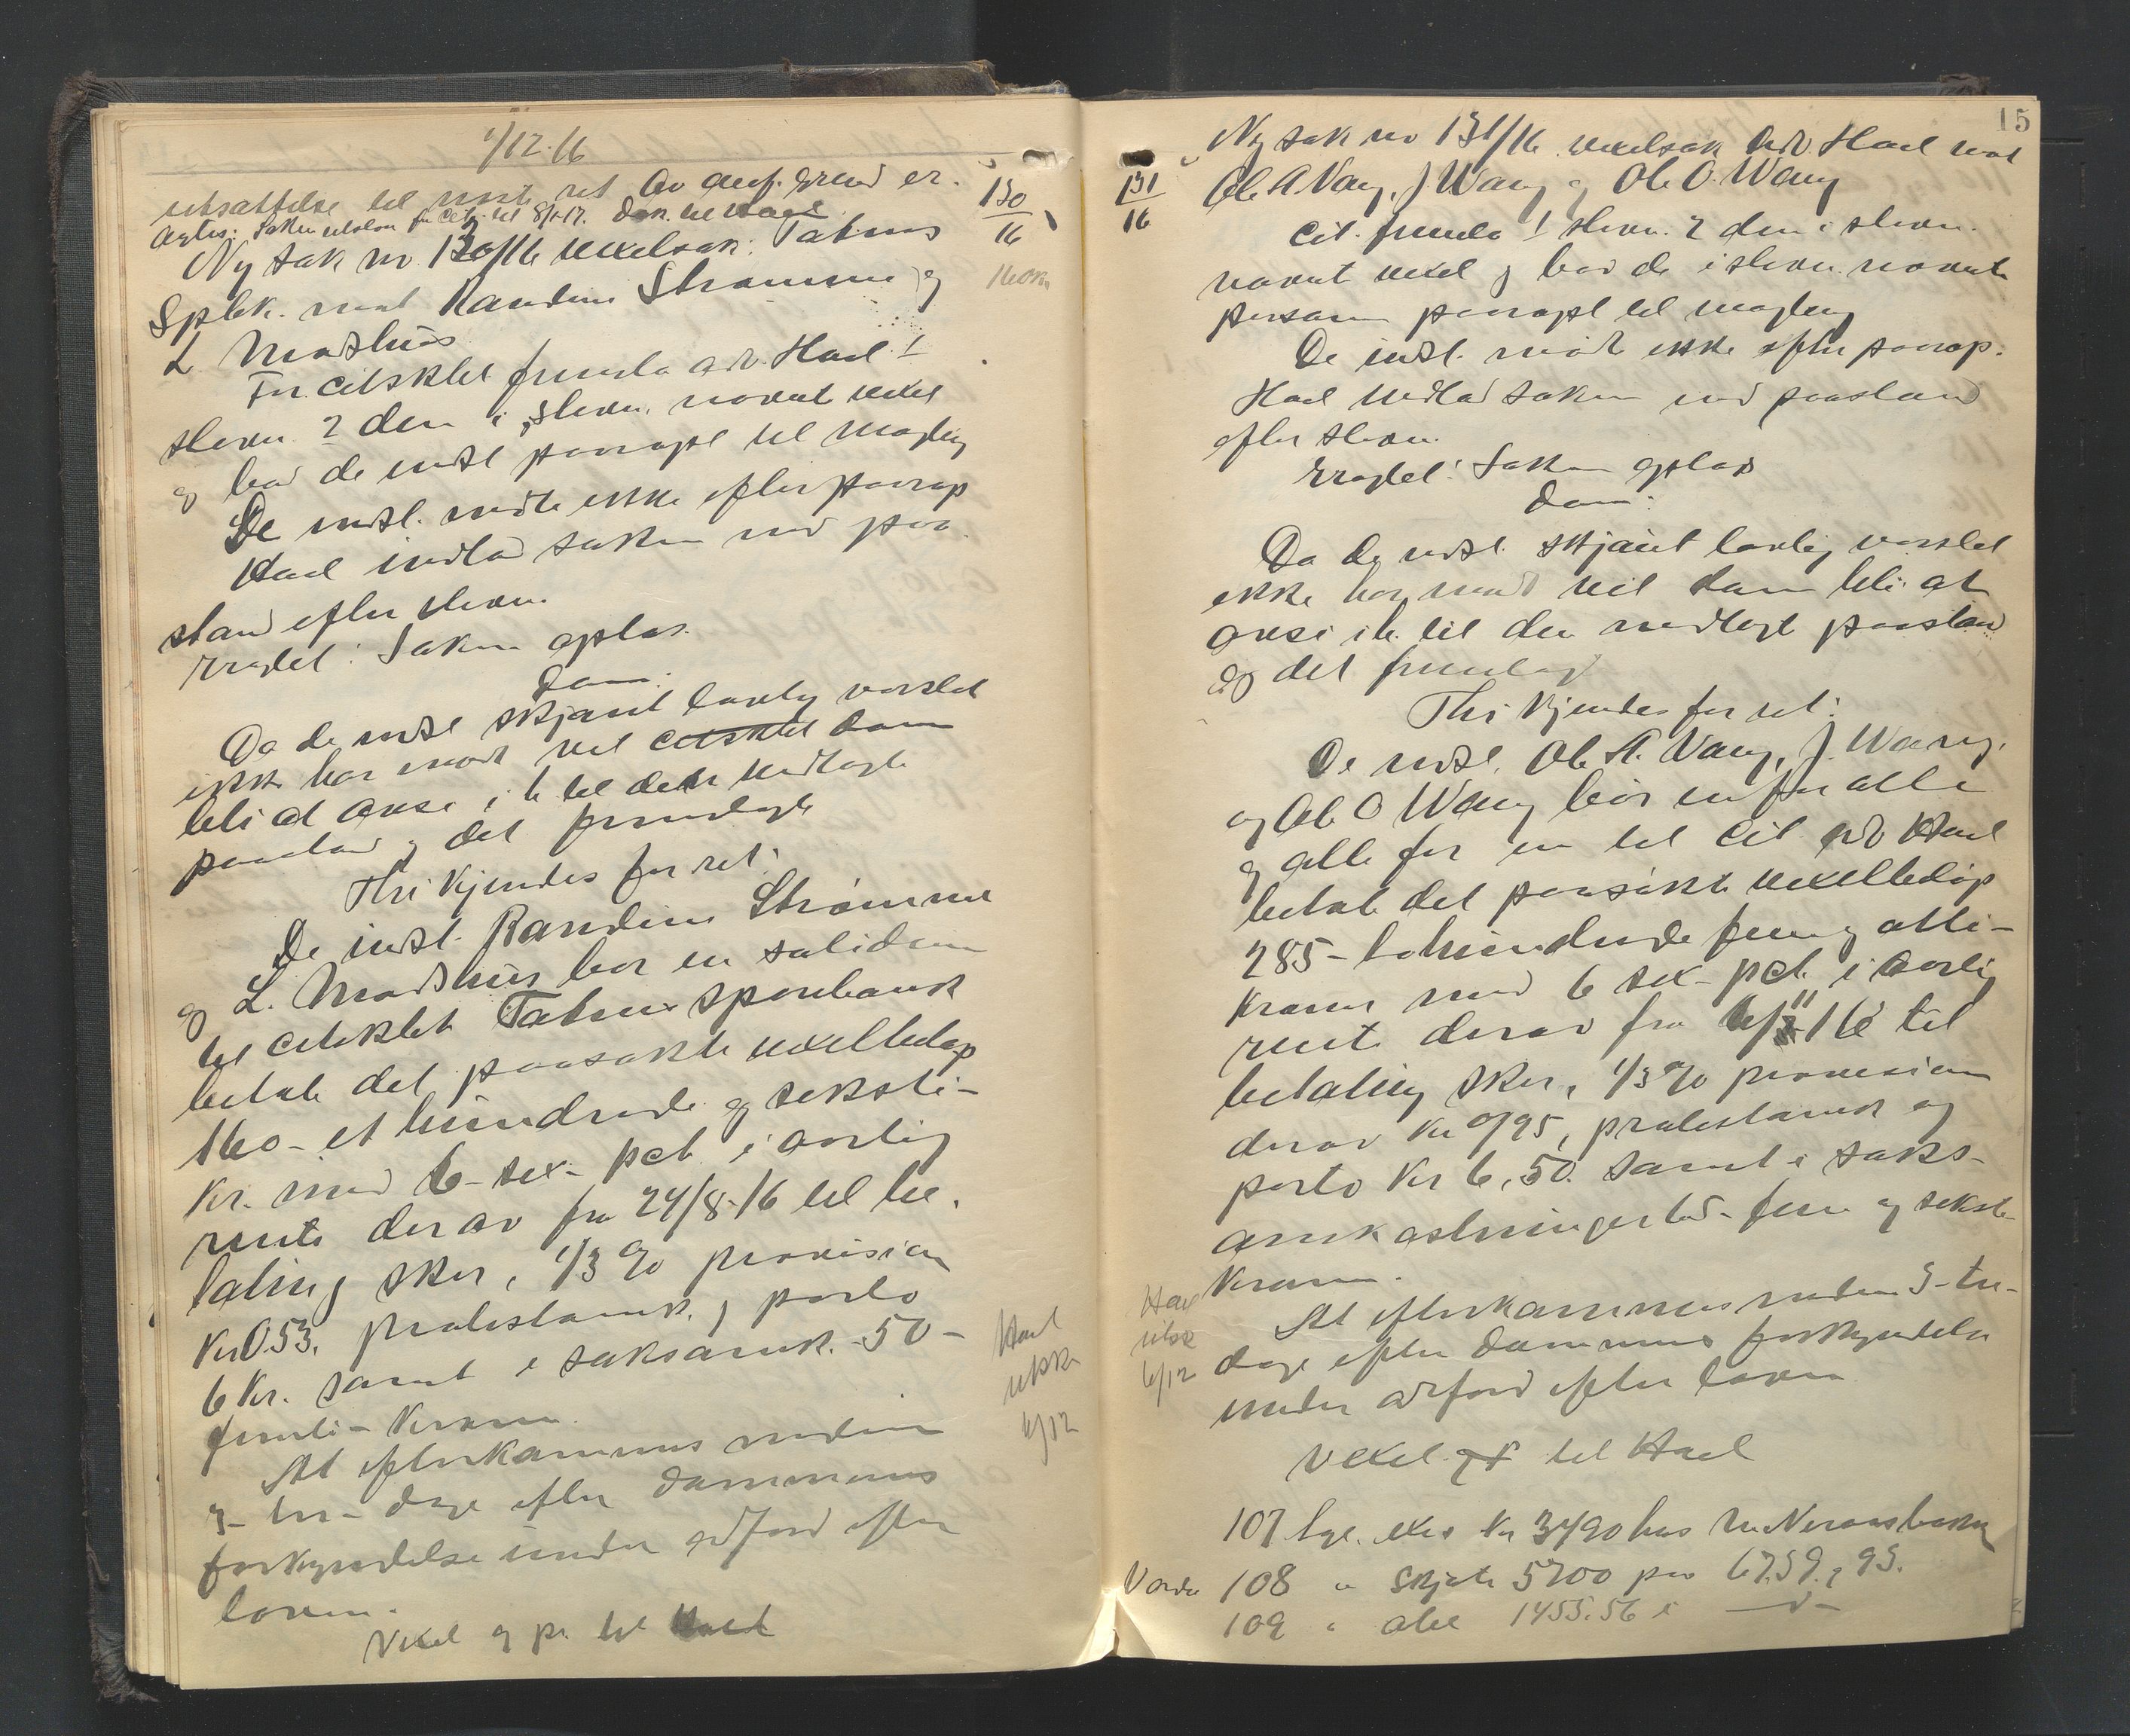 1/12.16
utsættelse til næste ret Av anf. grund er.
agtes: Saken utslaa for cit. til 8/1-17. Dok. til Hael
130
16
160 kr
Ny sak nr 130/16 vexelsak: Tatnes
Spbk. mot Randine Strømme og
L. Madshus
For citsktet fremla adv. Hael 1
stevn. 2 den i stevn. nævnte vexel
og bad de indst paaropt til mægling
De indst. mødte ikke efter paarop
Hael indlod saken med paa
stand efter stevn.
Eragtet: Saken optas.
Dom:
Da de indst skjønt lovlig varslet
ikke har møtt vil citsktet dom
bli at avsi i h. til den nedlagte
paastand og det fremlagte
Thi kjendes for ret:
De indst. Randine Strømme
og L. Madshus bør in solidum
til citsktet Tatnes sparebank
betale det paasøkte vexelbeløp
160 - et hundrede og seksti -
kr. med 6 - sex - pct. i aarlig
rente derav fra 24/8-16 til be-
taling sker, 1/3 % provision
kr 0.53, protestomk. og porto
6 kr. samt i saksomk. - 50 -
femti - kroner.
At efterkommes inden
3 - tre - dage efter dommens
forkyndelse under adfærd efter
loven.
Vexel og pr. til Hael
Hael
utskr
6/12
15
131
16
Ny sak nr 131/16 vexelsak Adv. Hael mot
Ole A Vang, J Wang og Ole O. Wang
Cit. fremla 1 stevn. 2 den i stevn.
nævnt vexel og bad de i stevn. nævnte
personer paaropt til mægling
De indst. mødt ikke efter paarop.
Hael indlod saken med paastand
efter stevn.
Eragtet: Saken optas
Dom:
Da de indst. skjønt lovlig varslet
ikke har møtt vil dom bli at
avsi i h. til den nedlagt paastand
og det fremlagt
Thi kjendes for ret:
De indst. Ole A. Vang, J. Wang,
og Ole O Wang bør en for alle
og alle for en til cit adv Hael
betale det paasøkte vexelbeløp
285 - tohundrede fem og otti -
kroner med 6 sex - pct. i aarlig
rente derav fra 6/11 16 til
betaling sker, 1/3 % provision
derav kr 0/95, protestomk og
porto kr 6,50. samt i saks-
omkostninger 65 - fem og seksti
kroner.
At efterkommes inden 3 - tre -
dage efter dommens forkyndelse
under adfærd efter loven
Vexel. pr til Hael
Hael
utskr
6/12
107 lyst. exes kr 3490 hos
108 " skjøte 5700 paa 67.59. 93.
109 " obl 1455.56 i —"—